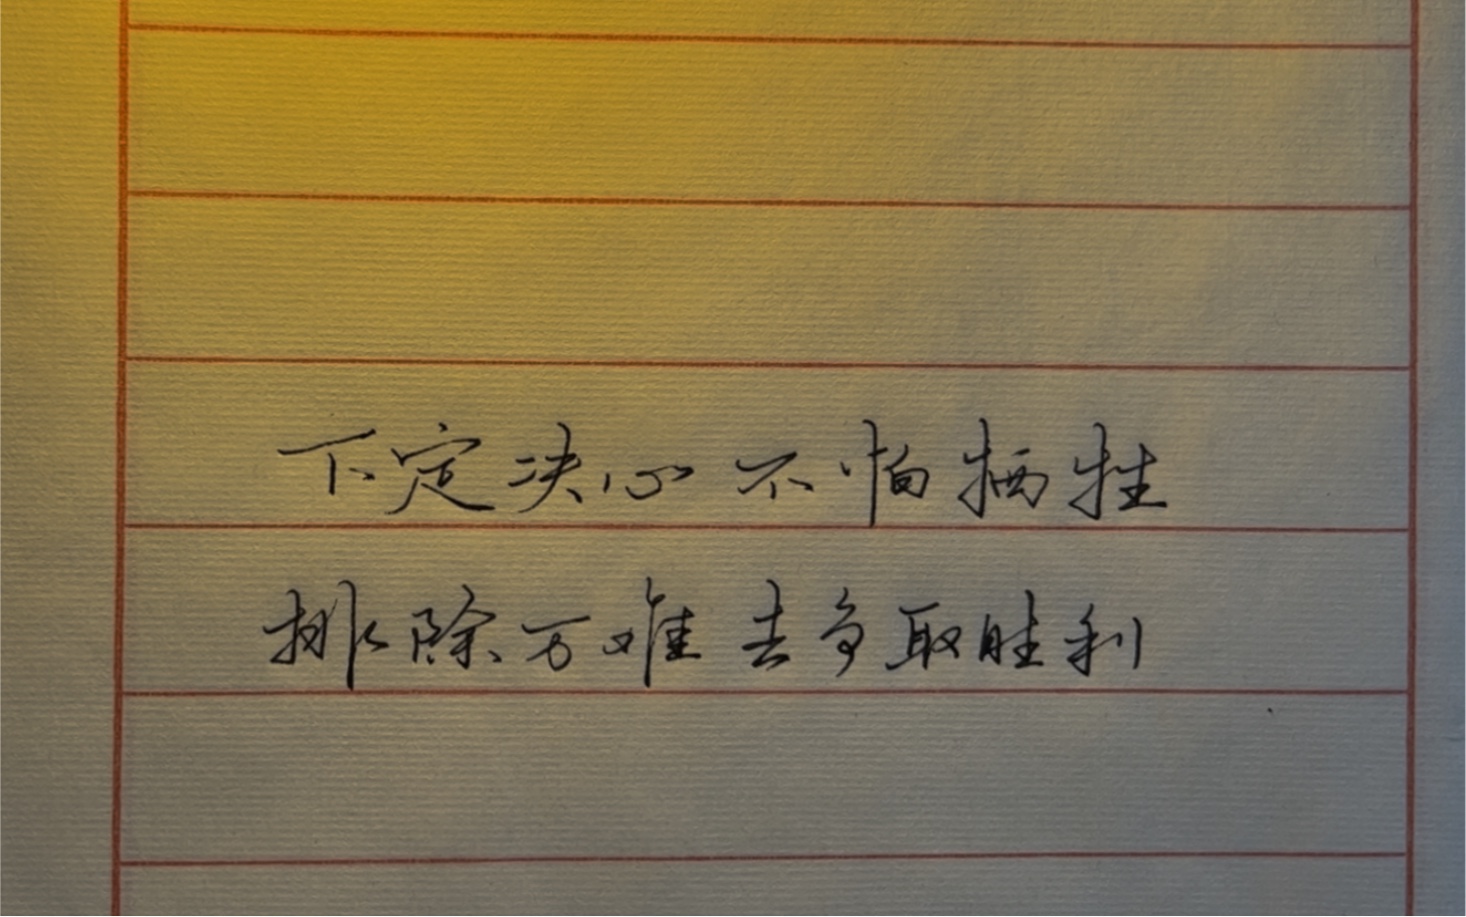 下定决心不怕牺牲
排除万难去争取胜利